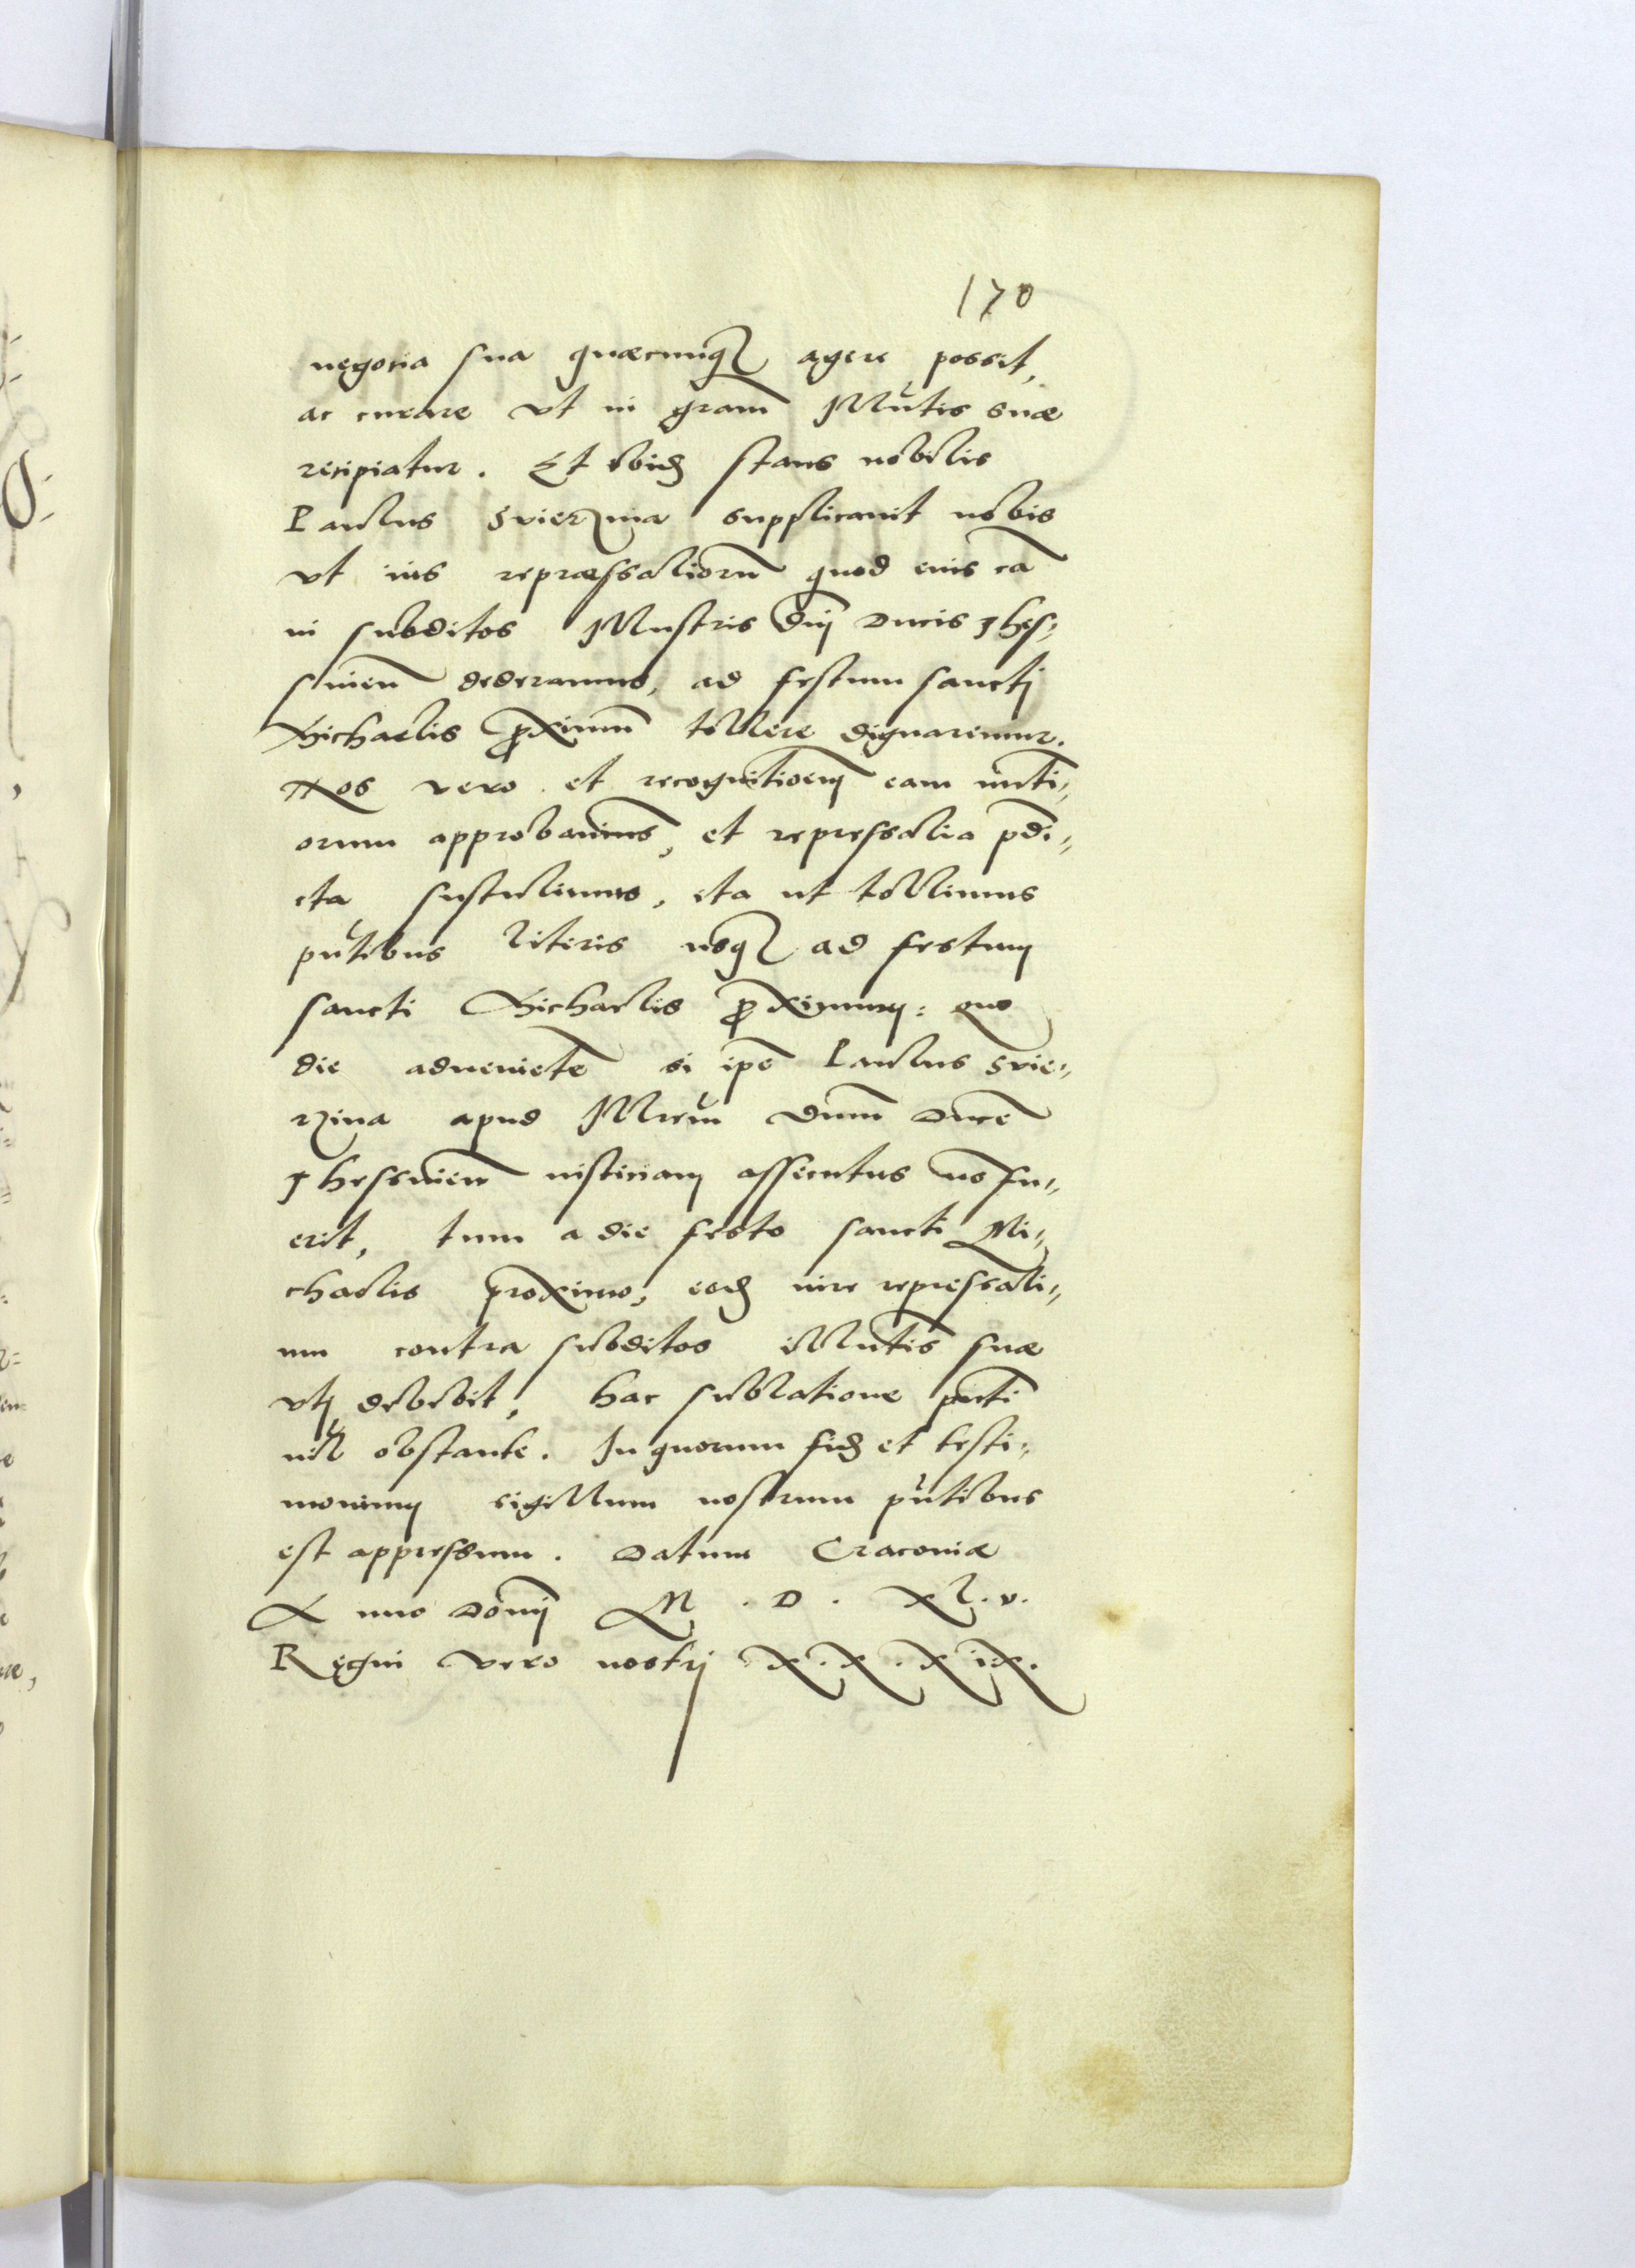 170
negocia sua quæcunq₃ agere possit,
ac curare vt in gram̃ Ill̃utis suæ
recipiatur. Et ibid₃ stans nobilis
Paulus Svierzina supplicauit nobis
vt ius repræssaliorũ quod eius cã
in subditos Illustris Dñi Ducis Thes⸗
sinien̄ dederamus, ad festum sancti
Michaelis ꝓximũ tollere dignaremur.
Nos vero et recognitionem eam nũti⸗
orum approbauimus, et repressalia p̃di⸗
cta sustulimus, ita ut tollimus
pñtibus literis usq₃ ad festum
sancti Michaelis ꝓximum: quo
die adueniẽte si ipẽ Paulus Svie⸗
rzina apud Illrem̃ Dnũm Ducẽ
Thessinien̄ iusticiam assecutus nõ fu⸗
erit, tum a die festo sancti Mi⸗
chaelis proximo, eod₃ iure repressali⸗
um contra subditos illũtis suæ
vti debebit, hac sublatione
nil̃ obstante. In quorum fid₃ et testi⸗
monium sigillum nostrum pñtibus
est appressum. Datum Cracoviæ
Anno Dom̃i M . D . XL . v .
Regni vero nostri X . X . X ix .